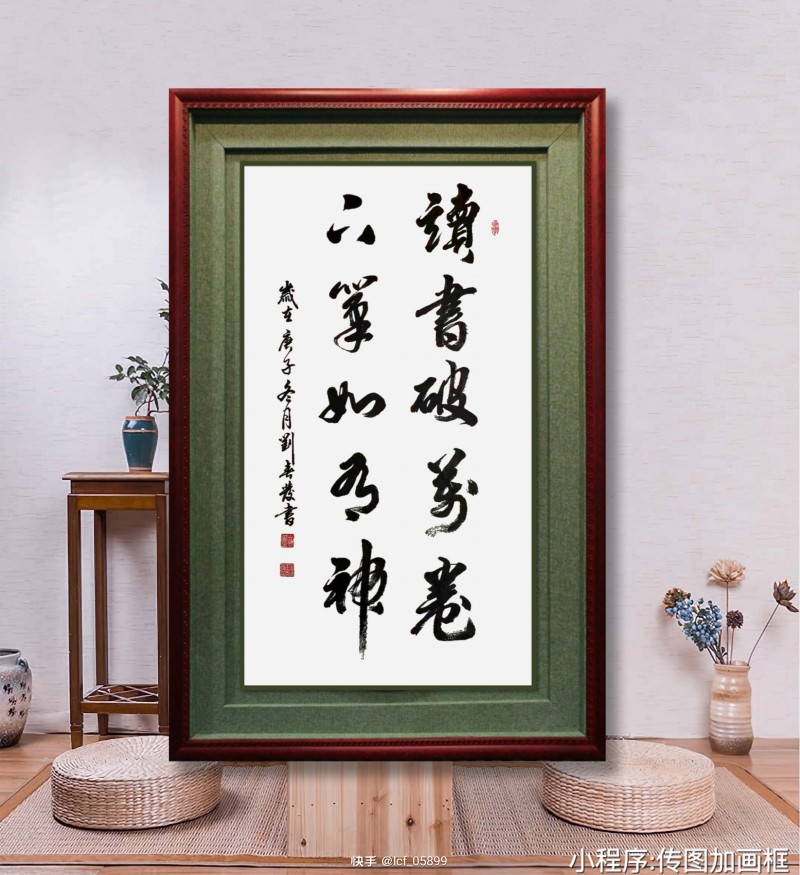 讀書破萬卷
下筆如有神
歲在庚子冬月劉春發書
快手 @lcf_05899
小程序:传图加画框